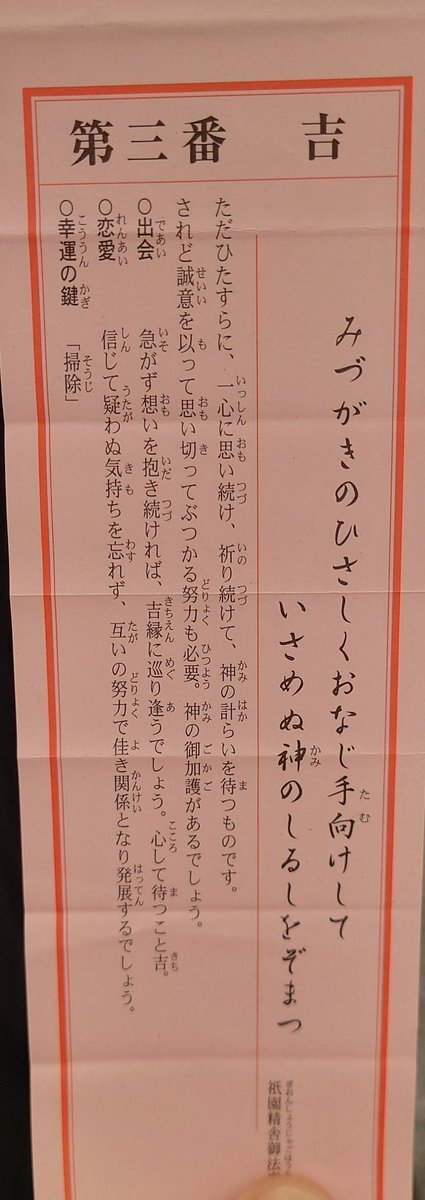 第三番　吉
みづがきのひさしくおなじ手向けして
いさめぬ神のしるしをぞまつ
祇園精舎御法
ただひたすらに、一心に思い続け、祈り続けて、神の計らいを待つものです。
されど誠意を以って思い切ってぶつかる努力も必要。神の御加護があるでしょう。
○出会　急がず想いを抱き続ければ、吉縁に巡り逢うでしょう。心して待つこと吉。
○恋愛　信じて疑わぬ気持ちを忘れず、互いの努力で佳き関係となり発展するでしょう。
○幸運の鍵　「掃除」